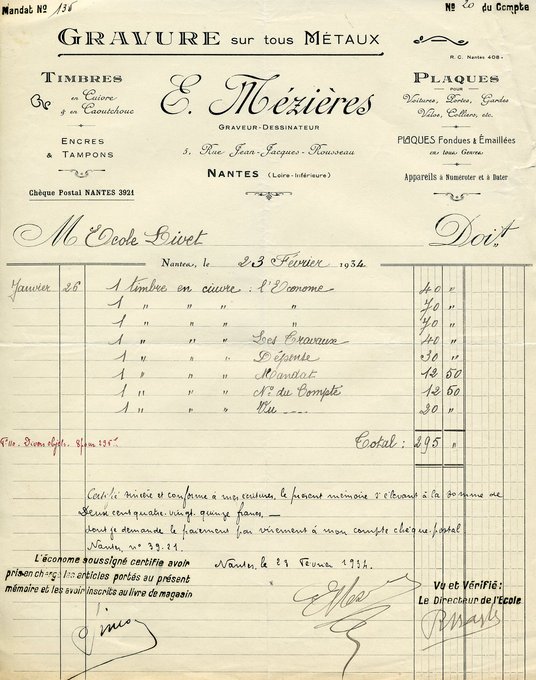 Mandat Nº 136
Nº 20 du Compte
GRAVURE sur tous MÉTAUX
R. C. Nantes 408
TIMBRES
en Cuivre
& en Caoutchouc
ENCRES
& TAMPONS
Chèque Postal NANTES 3921
E. Mézières
GRAVEUR-DESSINATEUR
5, Rue Jean-Jacques-Rousseau
NANTES (Loire-Inférieure)
PLAQUES
POUR
Voitures, Portes, Gardes
Vélos, Colliers, etc.
PLAQUES Fondues & Émaillées
en tous Genres
Appareils à Numéroter et à Dater
M Ecole Livet
Doit
Nantes, le 23 Février 1934
Janvier 26 1 timbre en cuivre : l'Econome 40 "
1 " " " " 70 "
1 " " " " 70 "
1 " " " Les Travaux 40 "
1 " " " Dépense 30 "
1 " " " Mandat 12 50
1 " " " Nº du Compte 12 50
1 " " " Vu 20 "
Divers objets. 8 pour 295f
Total : 295 "
Certifié sincère et conforme à mes écritures, le présent mémoire s'élevant à la somme de
Deux cent quatre-vingt-quinze francs, —
dont je demande le paiement par virement à mon compte chèque-postal
Nantes, nº 39.21.
Nantes, le 23 Février 1934.
L'économe soussigné certifie avoir
pris en charge les articles portés au présent
mémoire et les avoir inscrits au livre de magasin
Vu et Vérifié :
Le Directeur de l'Ecole